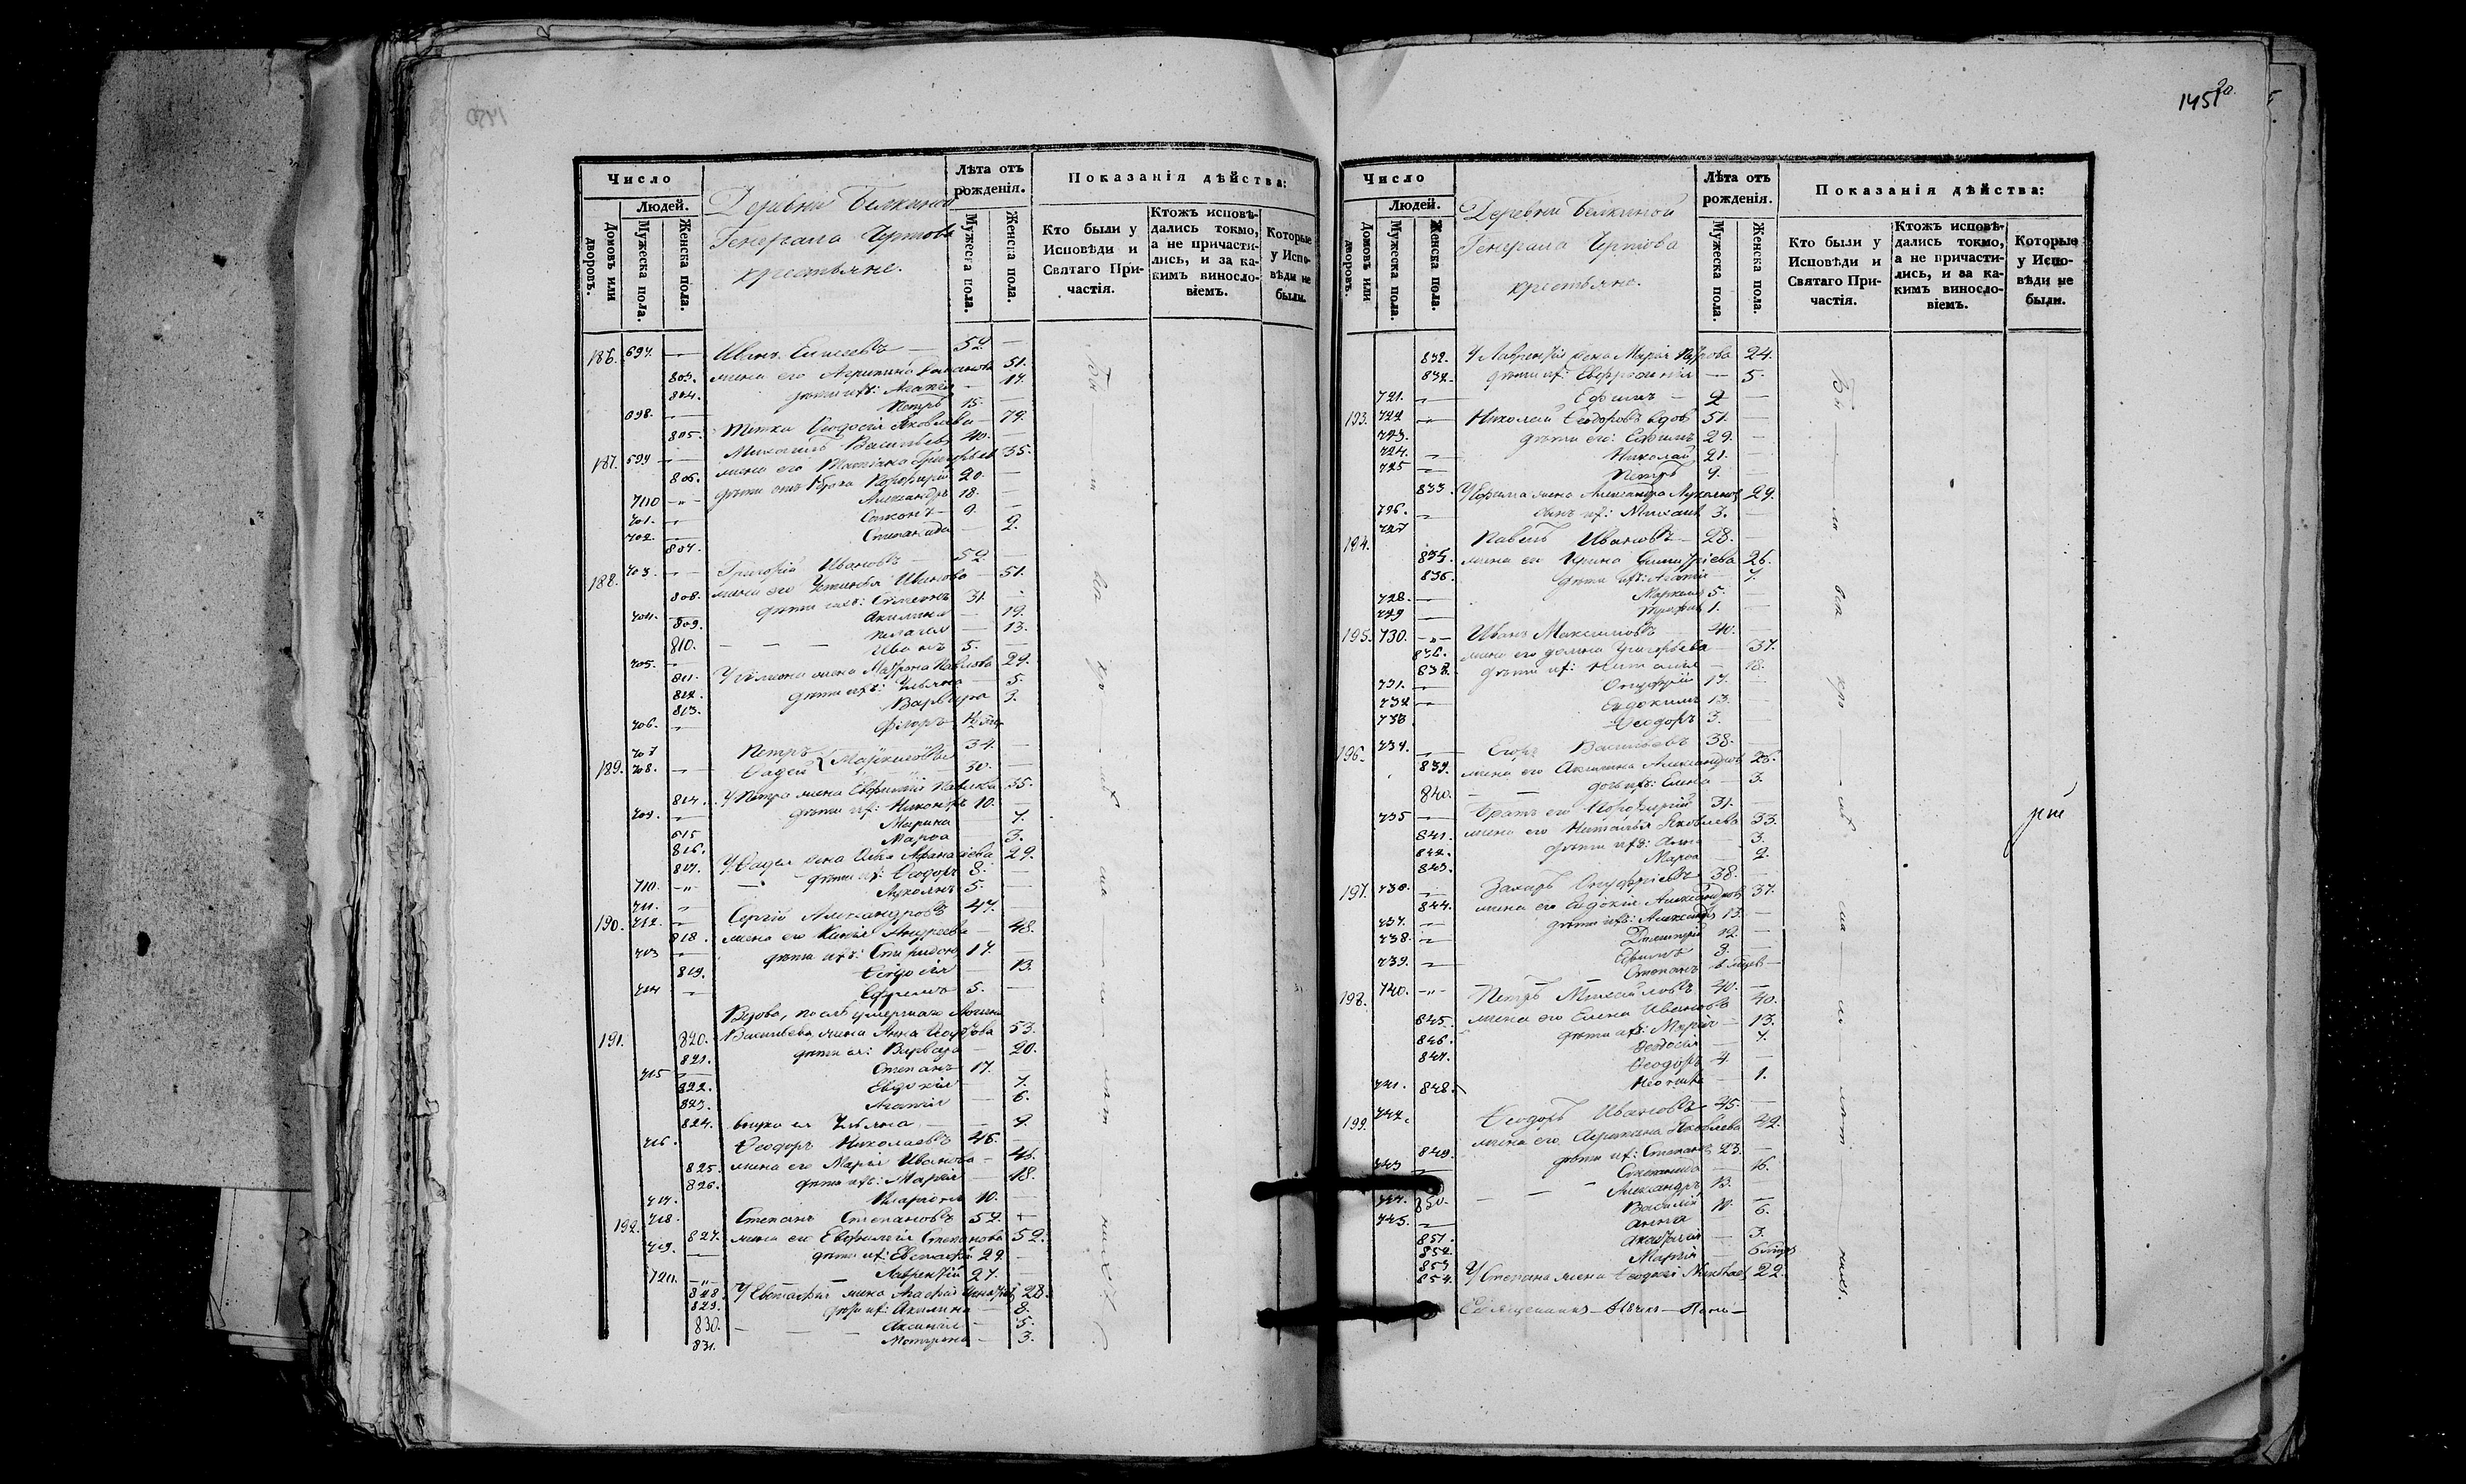 1451
Число
Людей.
Домовъ или дворовъ.
Мужеска пола.
Женска пола.
Деревни Белкиной
Генерала Чертова
крестьяне.
Лѣта отъ рожденія.
Мужеска пола.
Женска пола.
Показанія дѣйства:
Кто были у Исповѣди и Святаго Причастія.
Ктожъ исповѣдались токмо, а не причастились, и за какимъ винословіемъ.
Которые у Исповѣди не были.
186. 697. Иванъ Елисеевъ 52
803. жена его Агрипина 51.
804. дѣти ихъ: Агафія 17.
698. Петръ 15.
805. тетка Феодосія Яковлева 79.
187. 699 Михаилъ Васильевъ 40.
806. жена его Татіана Григорьев 35.
700 Порфирій 20.
701. Александръ 18.
702. Симеонъ 9.
807. Степанида 2.
188. 703. Григорій Ивановъ 52.
808. жена его Устинья Иванова 51.
704. дѣти ихъ: Симеонъ 31.
809. Акилина 19.
810. Пелагея 13.
705. Иванъ 5.
811. У Симеона жена Матрона Павлова 29.
812. дѣти ихъ: Ульяна 5.
813. Варвара 3.
706. Фролъ
189. 707 Петръ 34.
708. Фадей 30.
814. У Петра жена Евфимія Павлова 35.
709. дѣти их: Никоноръ 10.
815 Марина 7.
816. Марфа 3.
817. У Фадея жена Ольга Афанасіева 29.
710. дѣти их: Феодоръ 8.
711. Лукьянъ 5.
190. 712. Сергій Александровъ 47.
818. жена его Андреева 48.
713 дѣти ихъ: Спиридонъ 17.
819. Феодосія 13.
714 Ефремъ 5.
Вдова, послѣ умершаго
191. 820. Васильева жена Анна Феодорова 53.
821. дѣти ея: Варвара 20.
715 Степанъ 17.
822. Евдокія 7.
823. Агафія 6.
824. внука ея Ульяна 9.
716. Феодоръ Николаевъ 46.
825. жена его Марія Иванова 46.
826. дѣти ихъ: Марія 18.
717. Иларіонъ 10.
192. 718. Степанъ Степановъ 52.
827. жена его Евфимія Степанова 52.
719. дѣти их: Евстафій 29
720. Лаврентій 27.
828. У Евстафія жена Агафія 28.
829. дѣти их: Акилина 8.
830. Аксинія 5.
831. Матрена 3.
Бы ли вси
Число
Людей.
Домовъ или дворовъ.
Мужеска пола.
Женска пола.
Деревни Белкиной
Генерала Чертова
крестьяне.
Лѣта отъ рожденія.
Мужеска пола.
Женска пола.
Показанія дѣйства:
Кто были у Исповѣди и Святаго Причастія.
Ктожъ исповѣдались токмо, а не причастились, и за какимъ винословіемъ.
Которые у Исповѣди не были.
832. У Лаврентія жена Марія Петрова 24.
832. дѣти их: Евфросинія 5.
721. Ефимъ 2
193. 722 Николай Феодоровъ вдов 51.
723. дѣти его: Ефимъ 29.
724. Николай 21.
725 Петръ 9.
833. У Ефима жена Александра Лукьянов 29.
726. сынъ их: Михаил 3.
194. 727 Павелъ Ивановъ 28.
835. жена его Ирина Димитріева 26.
836. дѣти ихъ: Агафія 7.
728. Маркелъ 5.
729 Трофим 1.
195. 730. Иванъ Максимовъ 40.
836. жена его Домна Григорьева 37.
838. дѣти их: Наталья 18.
731. Онуфрій 17.
732 Евдокимъ 13.
733 Феодоръ 3.
196. 734. Егоръ Васильевъ 38.
839. жена его Акилина Александров 26.
840. дочь ихъ: Елена 3.
735 Братъ его Порфирій 31.
841. жена его Наталья Яковлева 33.
842. дѣти ихъ: Анна 3.
843. Марфа 2.
197. 736. Захаръ Онуфріевъ 38.
844. жена его Евдокія Александров 37.
737. дѣти ихъ: Александръ 13.
738. Димитрій 12.
739. Ефимъ 8.
Степанъ
198. 740. Петръ Михайловъ 40.
845. жена его Елена Иванова 40.
846. дѣти их: Марія 13.
847. Феодосія 7.
741. Феодоръ 4.
848. 1.
199. 742. Феодоръ Ивановъ 45.
849. жена его Агрипина Яковлева 42.
743 дѣти их: Степанъ 23.
850. Степанида 16.
744. Александръ 13.
745. Василій 10.
851. Анна 6.
852. 3.
853 Марія
854. У Степана жена 22.
Священникъ